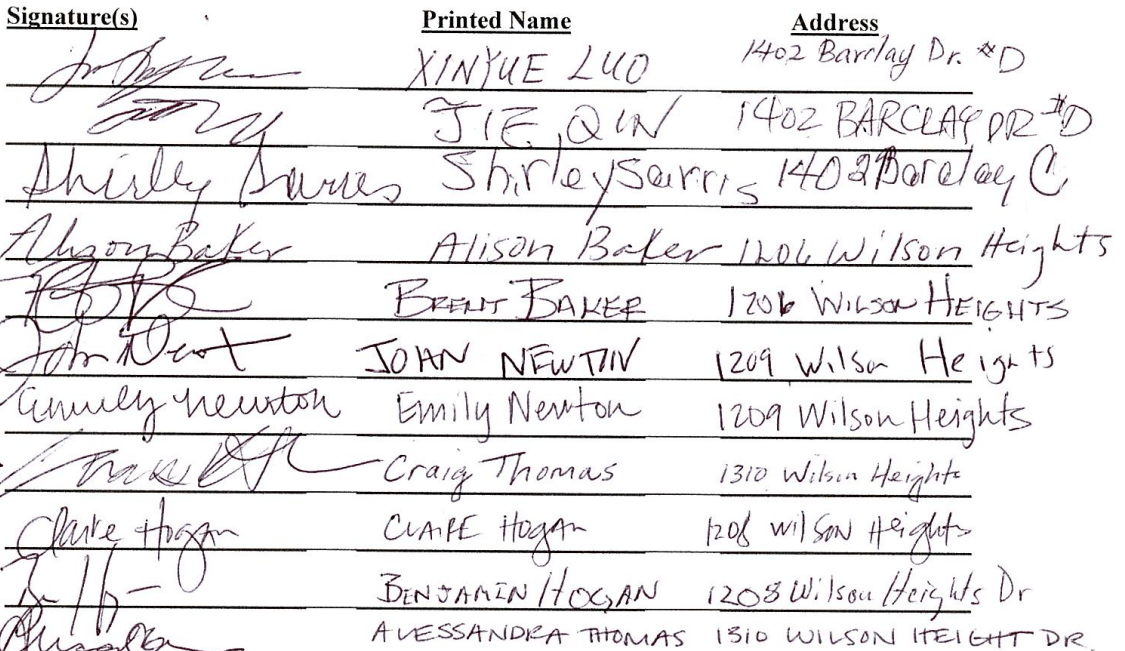 Signature(s) Printed Name Address
XINYUE LUO 1402 Barclay Dr. #D
JIE, QIN 1402 BARCLAY DR #D
Shirley Sarris Shirley Sarris 1402 Barclay C
Alison Baker Alison Baker 1206 Wilson Heights
BRENT BAKER 1206 WILSON HEIGHTS
John Newt JOHN NEWTON 1209 Wilson Heights
Emily Newton Emily Newton 1209 Wilson Heights
Craig Thomas 1310 Wilson Heights
Claire Hogan CLAIRE HOgAn 1208 wilSON Heights
BENJAMIN HOGAN 1208 Wilson Heights Dr
ALESSANDRA THOMAS 1310 WILSON HEIGHT DR.